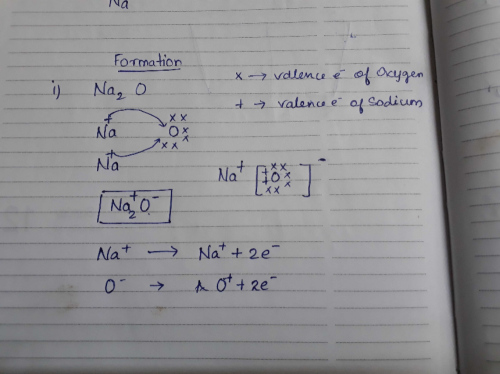 Na
Formation
i) Na₂ O
x → valence e⁻ of Oxygen
+ → valence e⁻ of Sodium
Na O
Na
Na⁺ [O]⁻
Na₂⁺O⁻
Na⁺ → Na⁺ + 2e⁻
O⁻ → O⁺ + 2e⁻